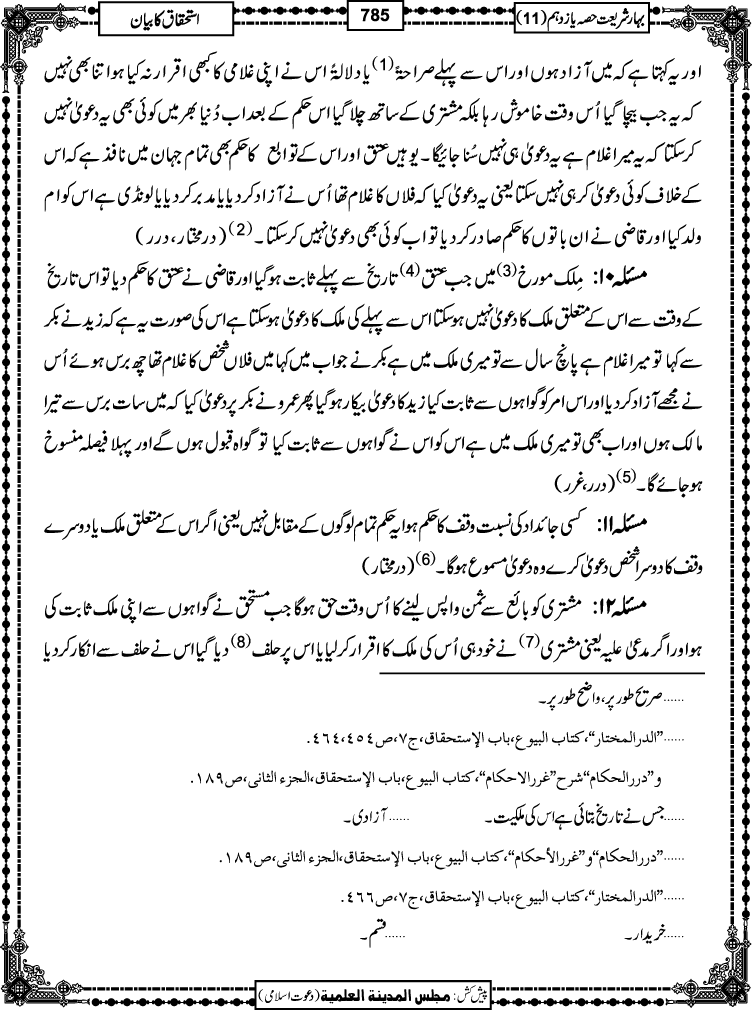 بہارِ شریعت حصہ یازدہم (11)
785
استحقاق کا بیان
اور یہ کہتا ہے کہ میں آزاد ہوں اور اس سے پہلے صراحۃً (1) یا دلالۃً اس نے اپنی غلامی کا کبھی اقرار نہ کیا ہو اتنا بھی نہیں
کہ یہ جب بیچا گیا اُس وقت خاموش رہا بلکہ مشتری کے ساتھ چلا گیا اس حکم کے بعد اب دُنیا بھر میں کوئی بھی یہ دعویٰ نہیں
کر سکتا کہ یہ میرا غلام ہے یہ دعویٰ ہی نہیں سُنا جائیگا۔ یوہیں عتق اور اس کے توابع کا حکم بھی تمام جہان میں نافذ ہے کہ اس
کے خلاف کوئی دعویٰ کر ہی نہیں سکتا یعنی یہ دعویٰ کیا کہ فلاں کا غلام تھا اُس نے آزاد کر دیا یا مدبر کر دیا یا لونڈی ہے اس کو ام
ولد کیا اور قاضی نے ان باتوں کا حکم صادر کر دیا تو اب کوئی بھی دعویٰ نہیں کر سکتا۔ (2) (درمختار، درر)
مسئلہ ۱۰: مِلک مورخ (3) میں جب عتق (4) تاریخ سے پہلے ثابت ہو گیا اور قاضی نے عتق کا حکم دیا تو اس تاریخ
کے وقت سے اس کے متعلق ملک کا دعویٰ نہیں ہو سکتا اس سے پہلے کی ملک کا دعویٰ ہو سکتا ہے اس کی صورت یہ ہے کہ زید نے بکر
سے کہا تو میرا غلام ہے پانچ سال سے تو میری ملک میں ہے بکر نے جواب میں کہا میں فلاں شخص کا غلام تھا چھ برس ہوئے اُس
نے مجھے آزاد کر دیا اور اس امر کو گواہوں سے ثابت کیا زید کا دعویٰ بیکار ہو گیا پھر عمرو نے بکر پر دعویٰ کیا کہ میں سات برس سے تیرا
مالک ہوں اور اب بھی تو میری ملک میں ہے اس کو اس نے گواہوں سے ثابت کیا تو گواہ قبول ہوں گے اور پہلا فیصلہ منسوخ
ہو جائے گا۔ (5) (درر، غرر)
مسئلہ ۱۱: کسی جائداد کی نسبت وقف کا حکم ہوا یہ حکم تمام لوگوں کے مقابل نہیں یعنی اگر اس کے متعلق ملک یا دوسرے
وقف کا دوسرا شخص دعویٰ کرے وہ دعویٰ مسموع ہوگا۔ (6) (درمختار)
مسئلہ ۱۲: مشتری کو بائع سے ثمن واپس لینے کا اُس وقت حق ہوگا جب مستحق نے گواہوں سے اپنی ملک ثابت کی
ہو اور اگر مدعیٰ علیہ یعنی مشتری (7) نے خود ہی اُس کی ملک کا اقرار کر لیا یا اس پر حلف (8) دیا گیا اس نے حلف سے انکار کر دیا
......صریح طور پر، واضح طور پر۔
......”الدرالمختار“، کتاب البیوع، باب الإستحقاق، ج۷، ص۴۵۴، ۴۶۴.
و ”دررالحکام“ شرح ”غررالاحکام“، کتاب البیوع، باب الإستحقاق، الجزء الثانی، ص۱۸۹.
......جس نے تاریخ بتائی ہے اس کی ملکیت۔ ......آزادی۔
......”دررالحکام“ و ”غررالأحکام“، کتاب البیوع، باب الإستحقاق، الجزء الثانی، ص۱۸۹.
......”الدرالمختار“، کتاب البیوع، باب الإستحقاق، ج۷، ص۴۶۶.
......خریدار۔ ......قسم۔
پیش کش: مجلس المدینة العلمیة (دعوت اسلامی)